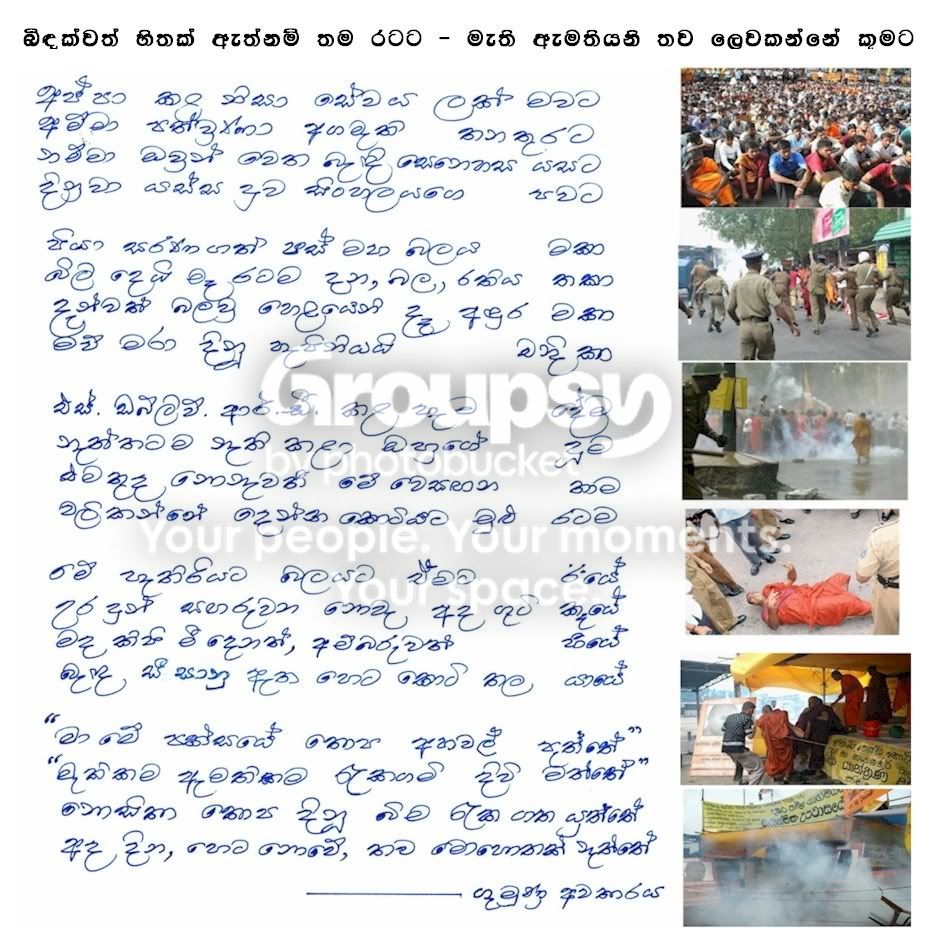 බිඳක්වත් හිතක් ඇත්නම් තම රටට - මැති ඇමතියනි තව ලෙවකන්නේ කුමට
අප්පා කළ නිසා සේවය ලක් මවට
අම්මා පත්වුණා අගමැති තනතුරට
නම්මා ඔවුන් වෙත බැඳි සෙනෙහස යසට
දිනුවා යස්ස දුව සිංහලයගෙ පවට
පියා සරණ ගත් පස් මහ බලය මකා
බිලි දෙයි මෑ රටම දන, බල, රතිය තකා
දැන්වත් බලවු හෙළයෙනි දෑ අඳුර මකා
මව් මරා දිනූ කැපිනියයි
එස්. ඩබ්ලිව්. ආර්. ඩී. කළ හැම
නැත්තටම නැති කළා ඔහුගේ දූම
එමතුද නොනැවතී මේ
වලිකන්නේ දෙන්න කොටියට මුළු රටම
මේ හැතිරියට බලයට ඒමට රැයේ
උර දුන් සඟරුවන නොවැ අද ගුටි කෑයේ
මද කිපි මී දෙනත්, අම්බරුවත්
බැඳ සී සානු ඇත හෙට කොටි තල යායේ
"මා මේ පක්සයේ තොප අතවල් පත්තේ"
"මැතිකම ඇමතිකම රැකගමි දිවි මත්තේ"
නොසිතා තොප දිනූ බිම රැක ගත යුත්තේ
අද දින, හෙට නොවේ, තව මොහොතක් නැත්තේ
ගැමුණු අවතාරය
Groupsy
by photobucket
Your people. Your moments.
Your space.